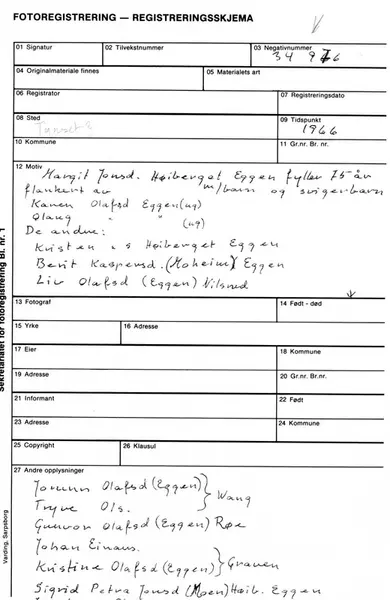 FOTOREGISTRERING — REGISTRERINGSSKJEMA
01 Signatur
02 Tilvekstnummer
03 Negativnummer
34 976
04 Originalmateriale finnes
05 Materialets art
06 Registrator
07 Registreringsdato
08 Sted
09 Tidspunkt
1966
10 Kommune
11 Gr.nr. Br.nr.
12 Motiv
Margit Jonsd. Høiberget Eggen fyller 75 år
flankert av m/barn og svigerbarn
Karen Olafsd Eggen (ug)
Olaug " " (ug)
De andre:
Kristen s Høiberget Eggen
Berit Kaspersd. (Moheim) Eggen
Liv Olafsd (Eggen)
13 Fotograf
14 Født - død
15 Yrke
16 Adresse
17 Eier
18 Kommune
19 Adresse
20 Gr.nr. Br.nr.
21 Informant
22 Født
23 Adresse
24 Kommune
25 Copyright
26 Klausul
27 Andre opplysninger
Jorunn Olafsd (Eggen)
Tryve Ols. } Wang
Gunvor Olafsd (Eggen) Røe
Johan Einars.
Kristine Olafsd (Eggen) } Graven
Sigrid Petra Jonsd (Moen) Høib. Eggen
Sekretariatet for fotoregistrering Bl. nr. 1
Varding, Sarpsborg